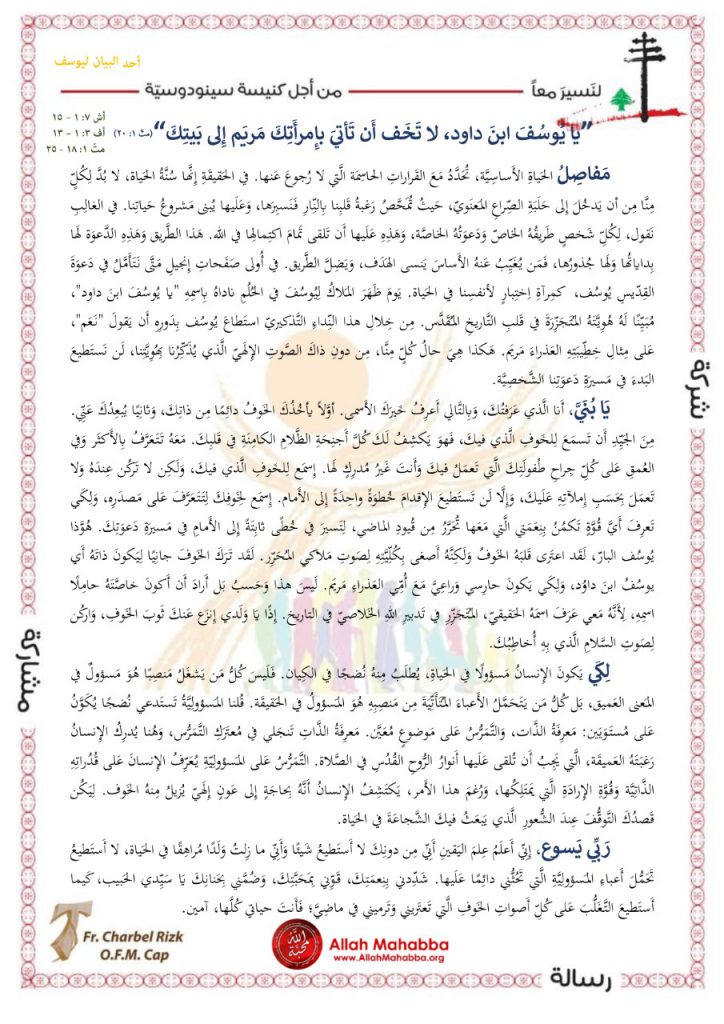 أحد البيان ليوسف
لنَسيرَ معاً
من أجل كنيسة سينودوسيّة
أش ٧: ١ - ١٥
أف ٣: ١ - ١٣
متّ ١: ١٨ - ٢٥
"يا يُوسُفَ ابنَ داود، لا تَخَف أَن تَأتيَ بِإمرَأَتِكَ مَريَم إِلى بَيتِكَ" (مت ١: ٢٠)
مَفاصِلُ الحَياةِ الأَساسِيَّة، تُحَدَّدُ مَعَ القَراراتِ الحاسِمَة الَّتي لا رُجوعَ عَنها. في الحَقيقَةِ إِنَّها سُنَّةُ الحَياة، لا بُدَّ لِكُلٍّ
مِنَّا مِن أَن يَدخُلَ إِلى حَلَبَةِ الصِّراعِ المَعنَويّ، حَيثُ تُمَحَّصُ رَغبَةُ قَلبِنا بِالنَّارِ فَنَسبِرَها، وَعَلَيها يُبنى مَشروعُ حَياتِنا. في الغالِبِ
نَقول، لِكُلِّ شَخصٍ طَريقُهُ الخاصّ وَدَعوَتُهُ الخاصَّة، وَهَذِهِ عَلَيها أَن تَلقى تَمامَ اكتِمالِها في الله. هَذا الطَّريق وَهَذِهِ الدَّعوَة لَها
بِداياتُها وَلَها جُذورُها، فَمَن يُغَيِّبُ عَنهُ الأَساسَ يَنسى الهَدَف، وَيَضِلَّ الطَّريق. في أُولى صَفَحاتِ إِنجيلِ مَتَّى نَتَأَمَّلُ في دَعوَةِ
القِدّيسِ يُوسُف، كَمِرآةِ اِختِبارٍ لأَنفسِنا في الحَياة. يَومَ ظَهَرَ المَلاكُ لِيُوسُفَ في الحُلُمِ ناداهُ بِاسمِهِ "يا يوسُفَ ابنَ داود"،
مُبَيِّنًا لَهُ هُوِيَّتَهُ المُتَجَزِّرَةَ في قَلبِ التَّاريخِ المُقَدَّس. مِن خِلالِ هَذا النِّداءِ التَّذكيريّ استَطاعَ يُوسُف بِدَورِهِ أَن يَقولَ "نَعَم"،
عَلى مِثالِ خِطِّيبَتِهِ العَذراءَ مَريَم. هَكذا هِيَ حالُ كُلٍّ مِنَّا، مِن دونِ ذاكَ الصَّوتِ الإِلَهيّ الَّذي يُذَكِّرُنا بِهُوِيَّتِنا، لَن نَستَطيعَ
البَدءَ في مَسيرَةِ دَعوَتِنا الشَّخصِيَّة.
يَا بُنَيَّ، أَنا الَّذي عَرَفتُكَ، وَبِالتَّالي أَعرِفُ خَيرَكَ الأَسمى. أَوَّلًا يَأخُذُكَ الخَوفُ دائِمًا مِن ذاتِكَ، وَثانِيًا يُبعِدُكَ عَنِّي.
مِنَ الجَيِّدِ أَن تَسمَعَ لِلخَوفِ الَّذي فيكَ، فَهوَ يَكشِفُ لَكَ كُلَّ أَجنِحَةِ الظَّلامِ الكامِنَةِ في قَلبِكَ. مَعَهُ تَتَعَرَّفُ بِالأَكثَر وَفي
العُمقِ عَلى كُلِّ جِراحِ طُفولَتِكَ الَّتي تَعمَلُ فيكَ وَأَنتَ غَيرُ مُدرِكٍ لَها. إِسمَع لِلخَوفِ الَّذي فيكَ، وَلَكِن لا تَركُن عِندَهُ وَلا
تَعمَلَ بِحَسَبِ إِملآتِهِ عَلَيكَ، وَإِلَّا لَن تَستَطيعَ الإِقدامَ خُطوَةً واحِدَةً إِلى الأَمام. إِسمَع لِخَوفِكَ لِتَتَعَرَّفَ عَلى مَصدَرِه، وَلِكَي
تَعرِفَ أَيَّ قُوَّةٍ تَكمُنُ بِنِعمَتي الَّتي مَعَها تُحَرَّرُ مِن قُيودِ الماضي، لِتَسيرَ في خُطًى ثابِتَةً إِلى الأَمامِ في مَسيرَةِ دَعوَتِكَ. هُوَّذا
يُوسُف البارّ، لَقَد اعتَرى قَلبَهُ الخَوفُ وَلَكِنَّهُ أَصغى بِكُلِّيَّتِهِ لِصَوتِ مَلاكي المُحَرِّر. لَقَد تَرَكَ الخَوفَ جانِبًا لِيَكونَ ذاتَهُ أَي
يوسُفُ ابنَ داوُد، وَلِكَي يَكونَ حارِسي وَراعِيَّ مَعَ أُمِّيَ العَذراءِ مَريَم. لَيسَ هذا وَحَسبُ بَل أَرادَ أَن أَكونَ خاصَّتَهُ حامِلًا
اسمِهِ، لِأَنَّهُ مَعي عَرَفَ اسمَهُ الحَقيقيّ، المُتَجَزِّرِ في تَدبيرِ اللهِ الخَلاصيّ في التاريخ. إِذًا يا وَلَدي إِنزَع عَنكَ ثَوبَ الخَوف، وَاركُن
لِصَوتِ السَّلامِ الَّذي بِهِ أُخاطِبُكَ.
لِكَي يَكونَ الإِنسانُ مَسؤولًا في الحَياةِ، يُطلَبُ مِنهُ نُضجًا في الكِيان. فَلَيسَ كُلُّ مَن يَشغَلُ مَنصِبًا هُوَ مَسؤولٌ في
المَعنى العَميق، بَل كُلُّ مَن يَتَحَمَّلُ الأَعباءَ المُتَأَتِّيَةَ مِن مَنصِبِهِ هُوَ المَسؤولُ في الحَقيقَة. قُلنا المَسؤولِيَّةُ تَستَدعي نُضجًا يُكَوَّنُ
عَلى مُستَوَيَين: مَعرِفَةُ الذَّات، وَالتَّمَرُّسُ عَلى مَوضوعٍ مُعَيَّن. مَعرِفَةُ الذَّاتِ تَنجَلي في مُعتَرَكِ التَّمَرُّس، وَهُنا يُدرِكُ الإِنسانُ
رَغبَتَهُ العَميقَة، الَّتي يَجِبُ أَن تُلقى عَلَيها أَنوارُ الرُّوحِ القُدُسِ في الصَّلاة. التَّمَرُّسُ عَلى المَسؤولِيَّةِ يُعَرِّفُ الإِنسانَ عَلى قُدُراتِهِ
الذَّاتِيَّة وَقُوَّةِ الإِرادَةِ الَّتي يَمتَلِكُها، وَرُغمَ هَذا الأَمر، يَكتَشِفُ الإِنسانُ أَنَّهُ بِحاجَةٍ إِلى عَونٍ إِلَهيٍّ يُزيلُ مِنهُ الخَوف. لِيَكُن
قَصدُكَ التَّوَقُّفَ عِندَ الشُّعورِ الَّذي يَبعَثُ فيكَ الشَّجاعَةَ في الحَياة.
رَبِّي يَسوع، إِنِّي أَعلَمُ عِلمَ اليَقين أَنِّي مِن دونِكَ لا أَستَطيعُ شَيئًا وَأَنِّي ما زِلتُ وَلَدًا مُراهِقًا في الحَياة، لا أَستَطيعُ
تَحَمُّلَ أَعباءِ المَسؤولِيَّةِ الَّتي تَحُثُّني دائِمًا عَلَيها. شَدِّدني بِنِعمَتِكَ، قَوِّني بِمَحَبَّتِكَ، وَضُمَّني بِحَنانِكَ يا سَيِّدي الحَبيب، كَيما
أَستَطيعَ التَّغَلُّبَ عَلى كُلِّ أَصواتِ الخَوفِ الَّتي تَعتَريني وَتَرميني في ماضِيَّ؛ فَأَنتَ حَياتي كُلُّها، آمين.
شركة
مشاركة
رسالة
Fr. Charbel Rizk
O.F.M. Cap
الله محبة
Allah Mahabba
www.AllahMahabba.org